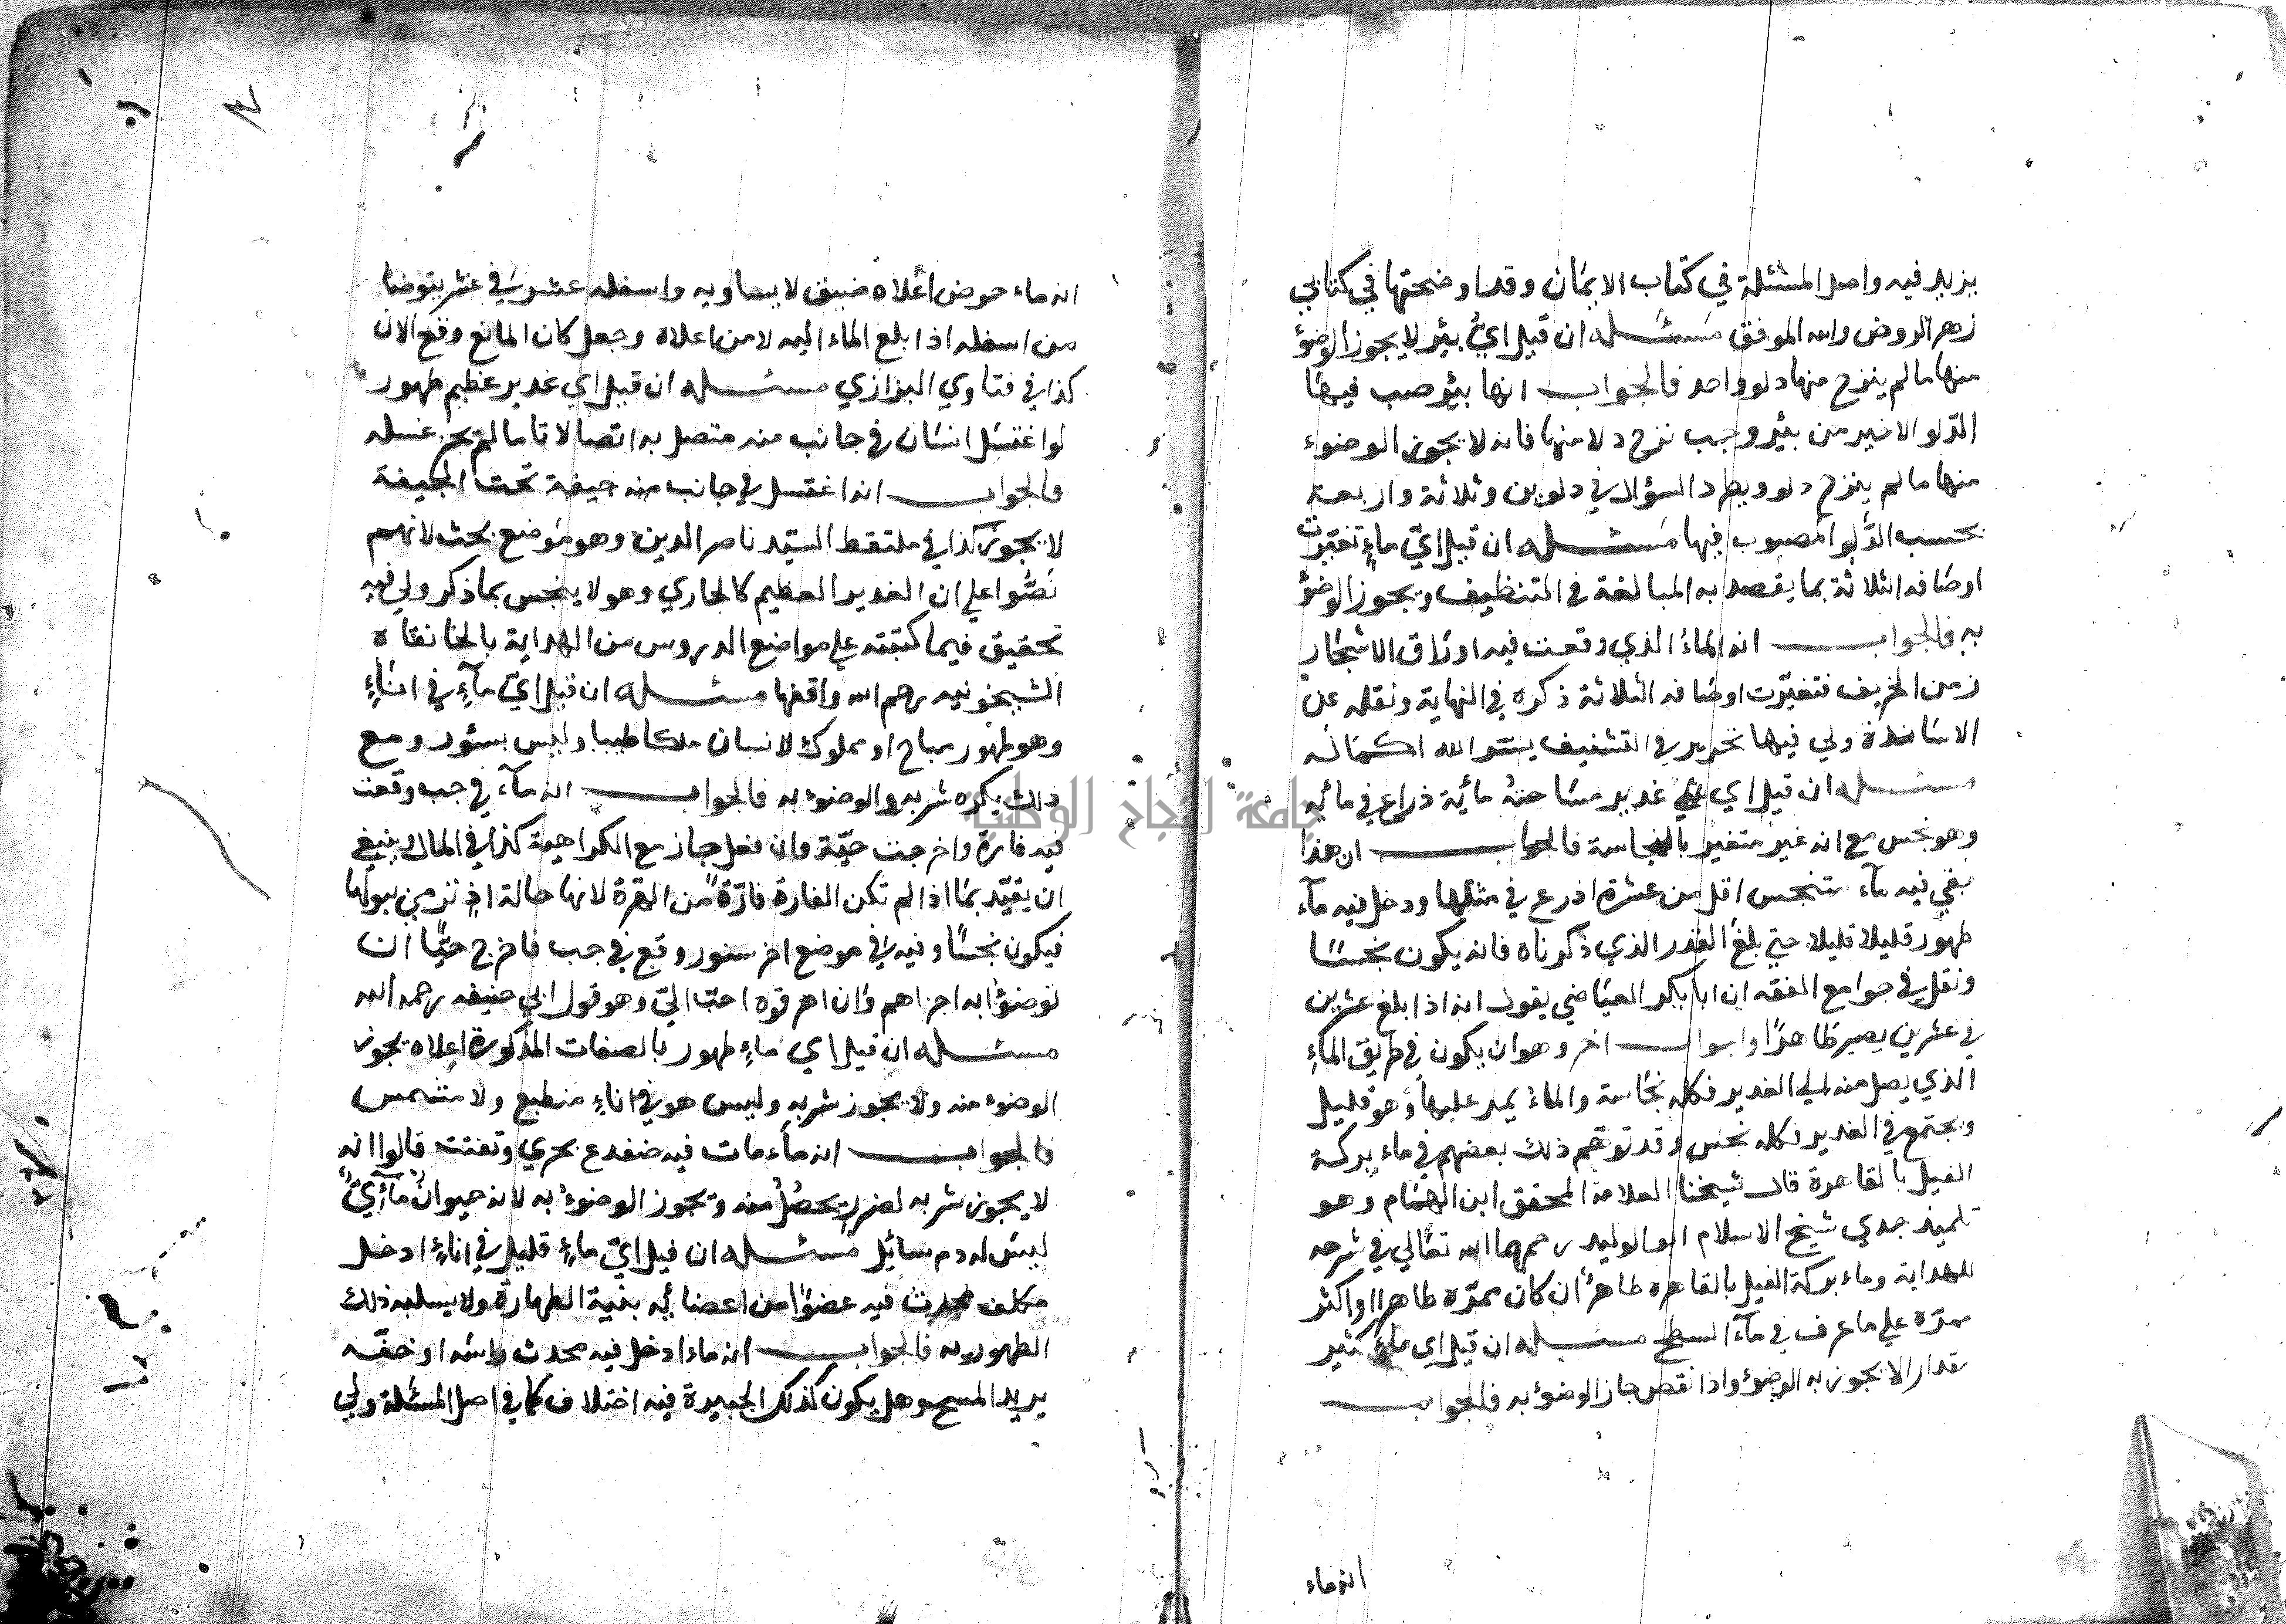 يزيد فيه واصل المسئلة في كتاب الايمان وقد اوضحتها في كتابي
زهر الروض والله الموفق مسئله ان قيل اي بئر لا يجوز الوضؤ
منها ما لم ينزح منها دلو واحد فالجواب انها بئر صب فيها
الدلو الاخير من بئر وجب نزح دلا منها فانه لا يجوز الوضوء
منها ما لم ينزح دلو ويطرد السؤال في دلوين وثلاثة واربعة
بحسب الدلو المصبوب فيها مسئله ان قيل اي ماء تغيرت
اوصافه الثلاثة بما يقصد به المبالغة في التنظيف ويجوز الوضؤ
به فالجواب انه الماء الذي وقعت فيه اوراق الاشجار
زمن الخريف فتغيرت اوصافه الثلاثة ذكره في النهاية ونقله عن
الاساتذة ولي فيها تحرير في التشنيف يسر الله اكماله
مسئله ان قيل اي غدير مساحته مائة ذراع في مائه
وهو نجس مع انه غير متغير بالنجاسة فالجواب ان هذا
بقي فيه مآء متنجس اقل من عشرة اذرع في مثلها ودخل فيه مآء
طهور قليلا قليلا حتي بلغ القدر الذي ذكرناه فانه يكون نجسا
ونقل في جوامع الفقه ان ابا بكر العياضي يقول انه اذا بلغ عشرين
في عشرين يصير طاهرا وجواب اخر وهو ان يكون في طريق الماء
الذي يصل منه الي الغدير فكله نجاسة والماء يمر عليها وهو قليل
ويجتمع في الغدير فكله نجس وقد توهم ذلك بعضهم في ماء بركة
الفيل بالقاهرة قال شيخنا العلامة المحقق ابن الهمام وهو
تلميذ جدي شيخ الاسلام ابو الوليد رحمهما الله تعالي في شرحه
للهداية وماء بركة الفيل بالقاهره طاهر ان كان ممره طاهرا او اكثر
ممره علي ما عرف في مآء السطح مسئله ان قيل اي ماء كثير
مقدار الا يجوز به الوضوء واذا نقص جاز الوضوء به فالجواب
انه ماء
انه ماء حوض اعلاه ضيق لا يساويه واسفله عشر في عشر يتوضا
من اسفله اذا بلغ الماء اليه لا من اعلاه وجعل كان المانع وقع الان
كذا في فتاوي البزازي مسئله ان قيل اي غدير عظيم طهور
لو اغتسل انسان في جانب منه متصل به اتصالا تاما لم يجز غسله
فالجواب انه اغتسل في جانب منه جيفة تحت الجيفة
لا يجوز كذا في ملتقط السيد ناصر الدين وهو موضع بحث لانهم
نصوا علي ان الغدير العظيم كالجاري وهو لا ينجس بما ذكر ولي فيه
تحقيق فيما كتبته علي مواضع الدروس من الهداية بالخانقاه
الشيخونيه رحم الله واقفها مسئله ان قيل اي مآء في اناء
وهو طهور مباح او مملوك لانسان ملكا طيبا وليس بسئور ومع
ذلك يكره شربه والوضوء به فالجواب انه مآء في جب وقعت
فيه فارة واخرجت حية وان فعل جاز مع الكراهية كذا في المال وينبغي
ان يقيد بما اذا لم تكن الفارة فارة من الهرة لانها حالة اذ ترمي ببولها
فيكون نجسا وفيه في موضع اخر سنور وقع في جب فاخرج حيا ان
توضؤا به اجزاهم وان اهرقوه احب الي وهو قول ابي حنيفه رحمه الله
مسئله ان قيل اي ماء طهور بالصفات المذكورة اعلاه يجوز
الوضوء منه ولا يجوز شربه وليس هو في اناء منطبع ولا متشمس
فالجواب انه ماء مات فيه ضفدع بحري وتفتت قالوا انه
لا يجوز شربه لضرر يحصل منه ويجوز الوضوء به لانه حيوان مآئي
ليس له دم سائل مسئله ان قيل اي ماء قليل في اناء ادخل
مكلف محدث فيه عضوا من اعضائه بنية الطهارة ولا يسلبه ذلك
الطهوريه فالجواب انه ماء ادخل فيه محدث راسه او خفه
يريد المسح وهل يكون كذلك الجبيرة فيه اختلاف كما في اصل المسئلة ولي
جامعة النجاح الوطنية